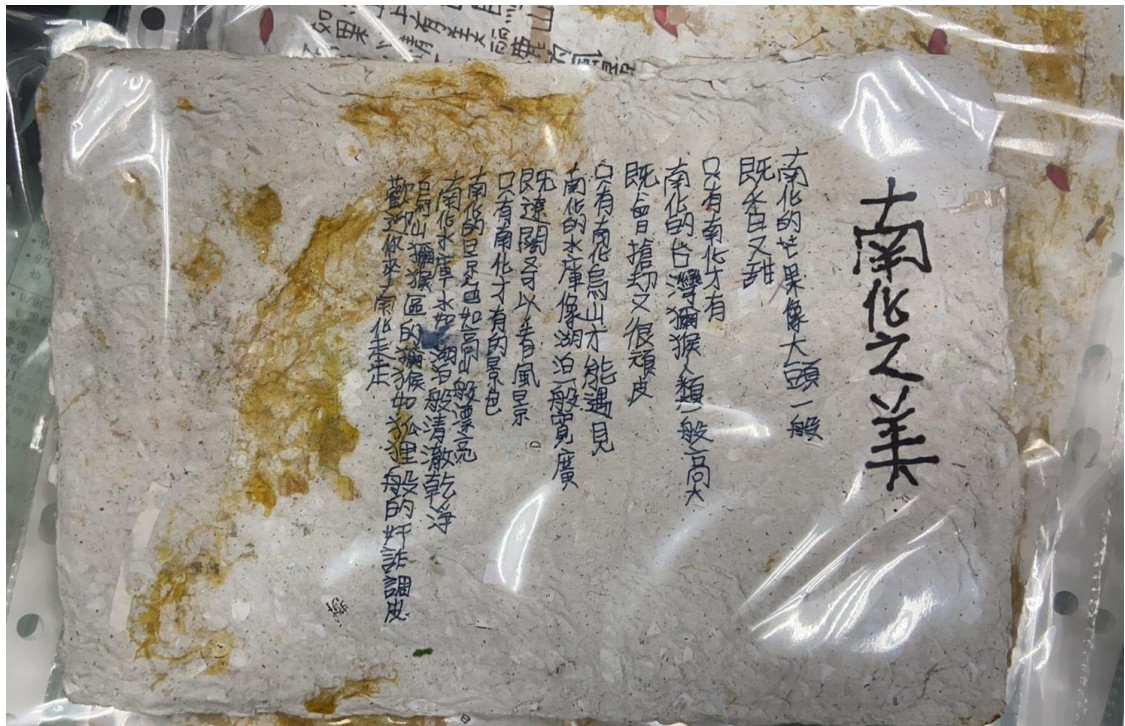 南化之美
南化的芒果像大頭一般
既香又甜
只有南化才有
南化的台灣獼猴人類一般高大
既會搶劫又很頑皮
只有南化烏山才能遇見
南化的水庫像湖泊一般寬廣
既遼闊又可以看風景
只有南化才有的景色
南化的景色如高山般漂亮
南化水庫水如湖泊般清澈乾淨
烏山獼猴區的獼猴如狐狸般的奸詐調皮
歡迎你來南化走走